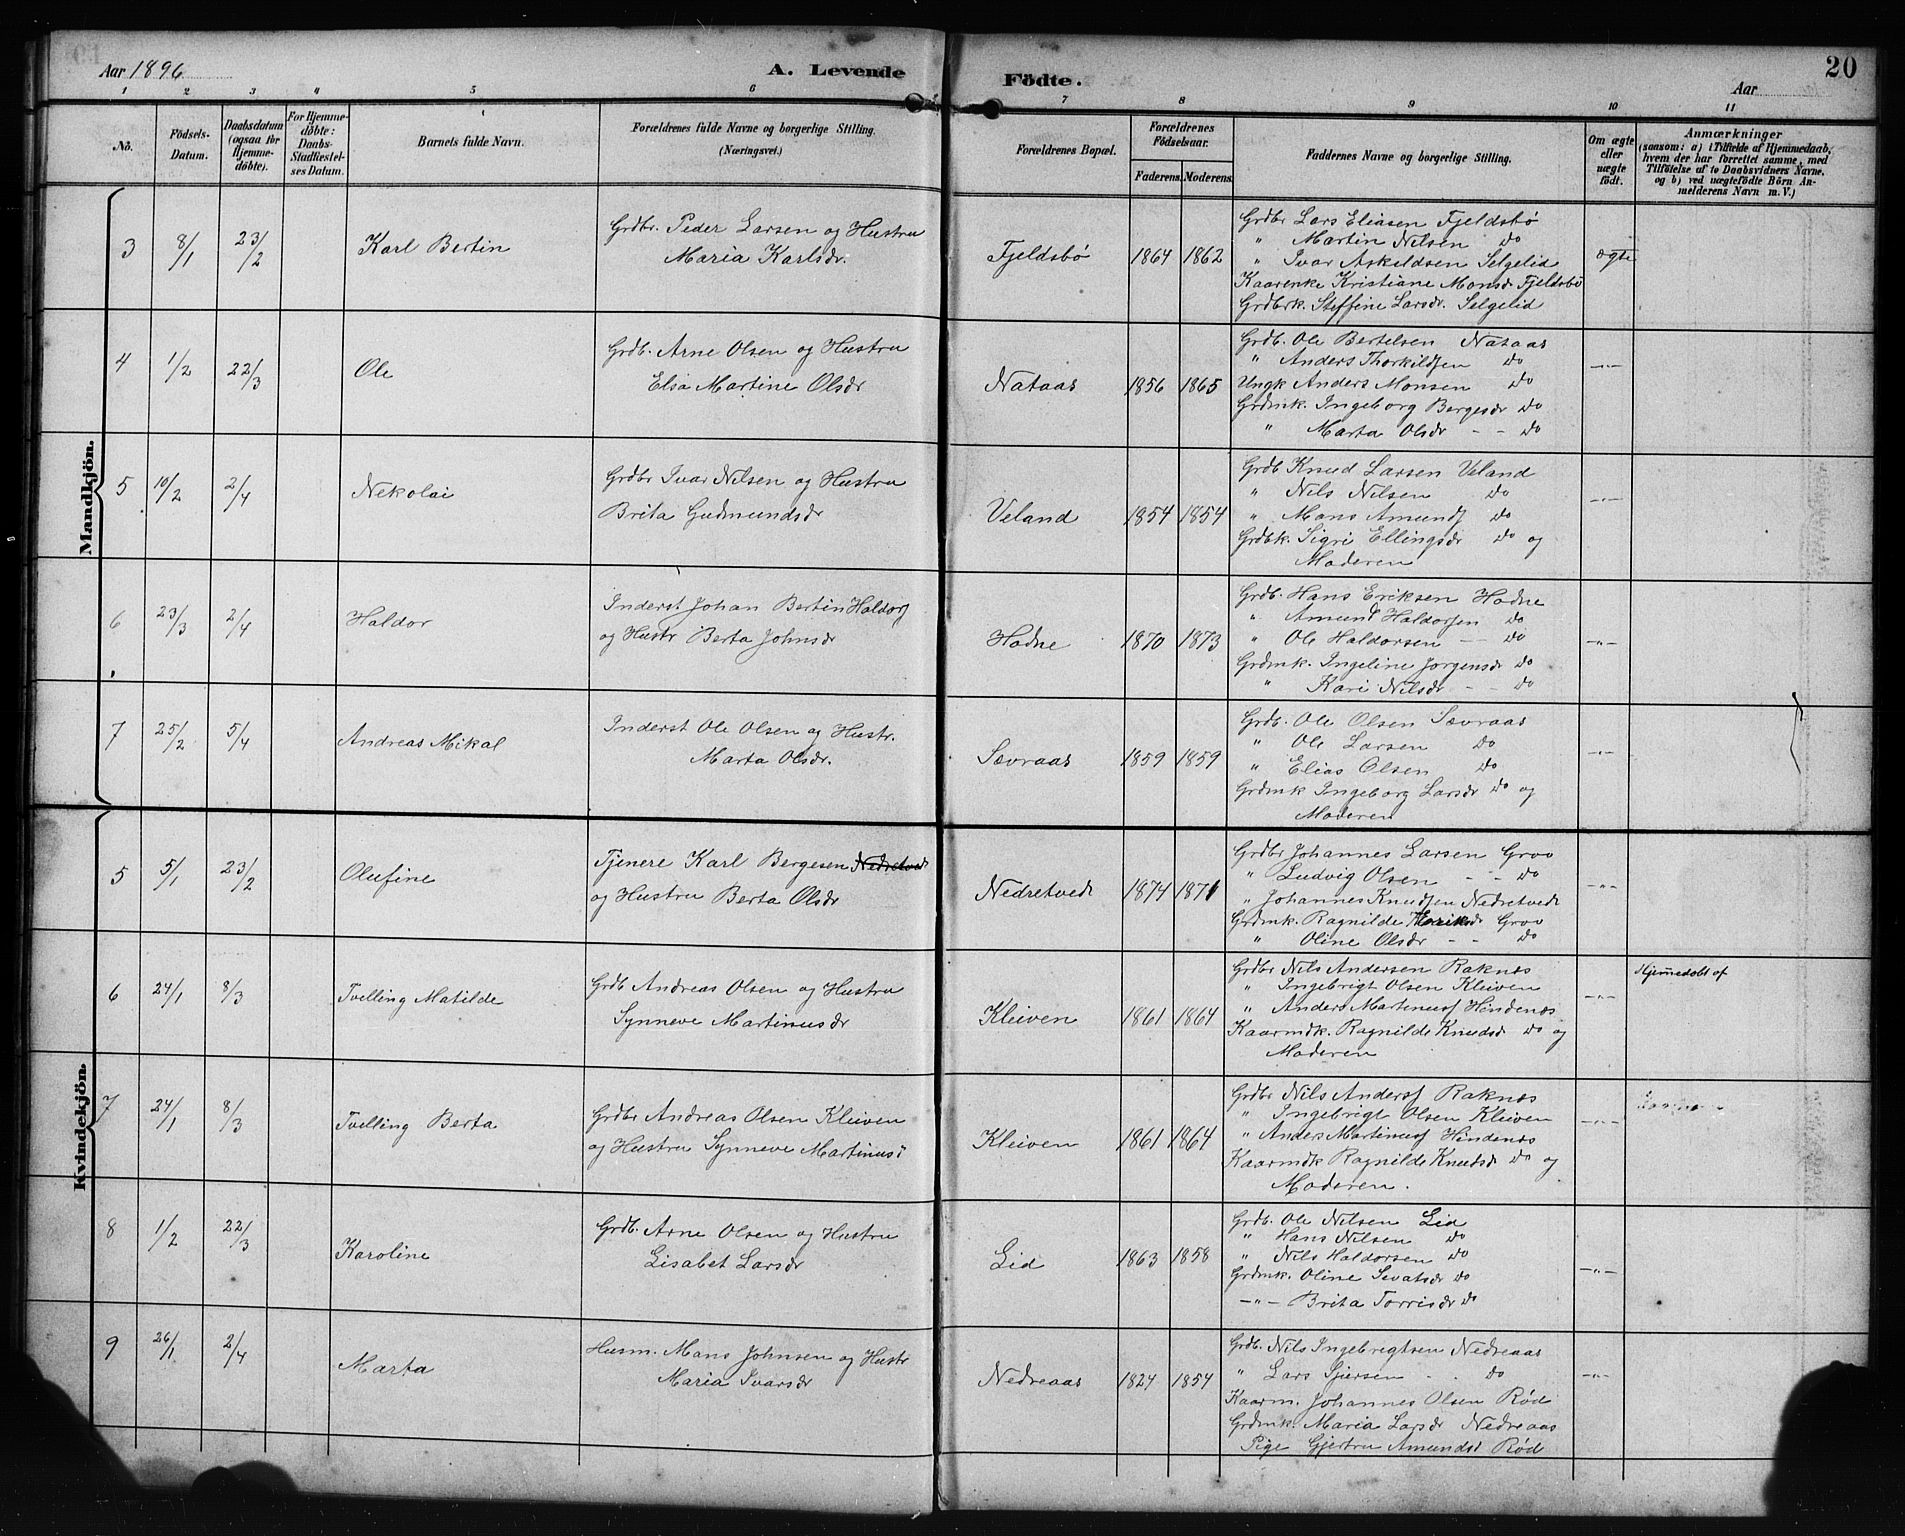 Aar 1896
A. Levende Födte.
Aar
20
1 2 3 4 5 6 7 8 9 10 11
No. Födsels-Datum. Daabsdatum (ogsaa för Hjemmedöbte). For Hjemmedöbte: Daabs-Stadfæstelses Datum. Barnets fulde Navn. Forældrenes fulde Navne og borgerlige Stilling. (Næringsvei.) Forældrenes Bopæl. Forældrenes Födselsaar. Faderens. Moderens. Faddernes Navne og borgerlige Stilling. Om ægte eller uægte födt. Anmærkninger (saasom: a) i Tilfælde af Hjemmedaab, hvem der har forrettet samme, med Tilföielse af to Daabsvidners Navne, og b) ved uægtefödte Börn Anmelderens Navn m. V.)
Mandkjön.
3 8/1 23/2 Karl Bertin
Grdbr. Peder Larsen og Hustru
Maria Karlsdr.
Fjeldsbö 1864 1862
Grdbr Lars Eliasen Fjeldsbø
" Martin Nilsen Do
" Ivar Askeldsen Selgelid
Kaarenke Kristiane Monsdr Fjeldsbø
Grdbrk. Steffine Larsdr. Selgelid
ægte
4 1/2 22/3 Ole
Grdb. Arne Olsen og Hustru
Elsa Martine Olsdr
Nataas 1856 1865
Grdb. Ole Bertelsen Nataas
" Anders Thorkildsen Do
Ungk Anders Monsen Do
Grdmk. Ingeborg Bergesdr Do
" Marta Olsdr - - Do
-"-
5 10/2 2/4 Nekolai
Grdbr Ivar Nilsen og Hustru
Brita Gudmundsdr
Veland 1854 1854
Grdb Knud Larsen Veland
" Nils Nilsen Do
" Mons Amunds Do
Grdbk. Sigri Ellingsdr Do og
Moderen
-"-
6 23/3 2/4 Haldor
Inderst Johan Bertin Haldors
og Hustr Berta Johnsdr
Hodne 1870 1873
Grdb. Hans Eriksen Hodne
" Amund Haldorsen Do
" Ole Haldorsen - - Do
Grdmk. Ingeline Jorgensdr Do
" Kari Nilsdr - - Do
-"-
7 25/2 5/4 Andreas Mikal
Inderst Ole Olsen og Hustr.
Marta Olsdr.
Sævraas 1859 1859
Grdb. Ole Olsen Sævraas
" Ole Larsen Do
" Elias Olsen Do
Grdmk Ingeborg Larsdr Do og
Moderen
-"-
Kvindekjön.
5 5/1 23/2 Olufine
Tjenere Karl Bergesen Nedretvedt
og Hustru Berta Olsdr
Nedretvedt 1874 1871
Grdbr Johannes Larsen Grov
" Ludvig Olsen - - Do
" Johannes Knudsen Nedretvedt
Grdmk. Ragnilde Grov
" Oline Olsdr - - Do
-"-
6 24/1 8/3 Tvelling Matilde
Grdb Andreas Olsen og Hustru
Synneve Martinusdr
Kleiven 1861 1864
Grdbr Nils Andersen Raknes
" Ingebrigt Olsen Kleiven
" Anders Martinuss Hindenes
Kaarmdk. Ragnilde Knudsdr Do og
Moderen
-"-
Hjemmedöbt af
7 24/1 8/3 Tvelling Berta
Grdbr Andreas Olsen Kleiven
og Hustru Synneve Martinusd
Kleiven 1861 1864
Grdbr Nils Anderss Raknes
" Ingebrigt Olsen Kleiven
" Anders Martinuss Hindenes
Kaarmdk Ragnilde Knudsdr Do og
Moderen.
-"-
8 1/2 22/3 Karoline
Grdb. Arne Olsen og Hustru
Lisabet Larsdr
Lid 1863 1858
Grdb. Ole Nilsen Lid
" Hans Nilsen Do
" Nils Haldorsen Do
Grdmk. Oline Sevatsdr Do
-"- Brita Torrisdr Do
-"-
9 26/1 2/4 Marta
Husm. Mons Johnsen og Hustr
Maria Ivarsdr
Nedreaas 1824 1854
Grdb. Nils Ingebrigtsen Nedreaas
" Lars Sjursen - - Do
Kaarm. Johannes Olsen Rød
Grdmk. Maria Larsdr Nedreaas
Pige Gjertru Amundsd Rød
-"-